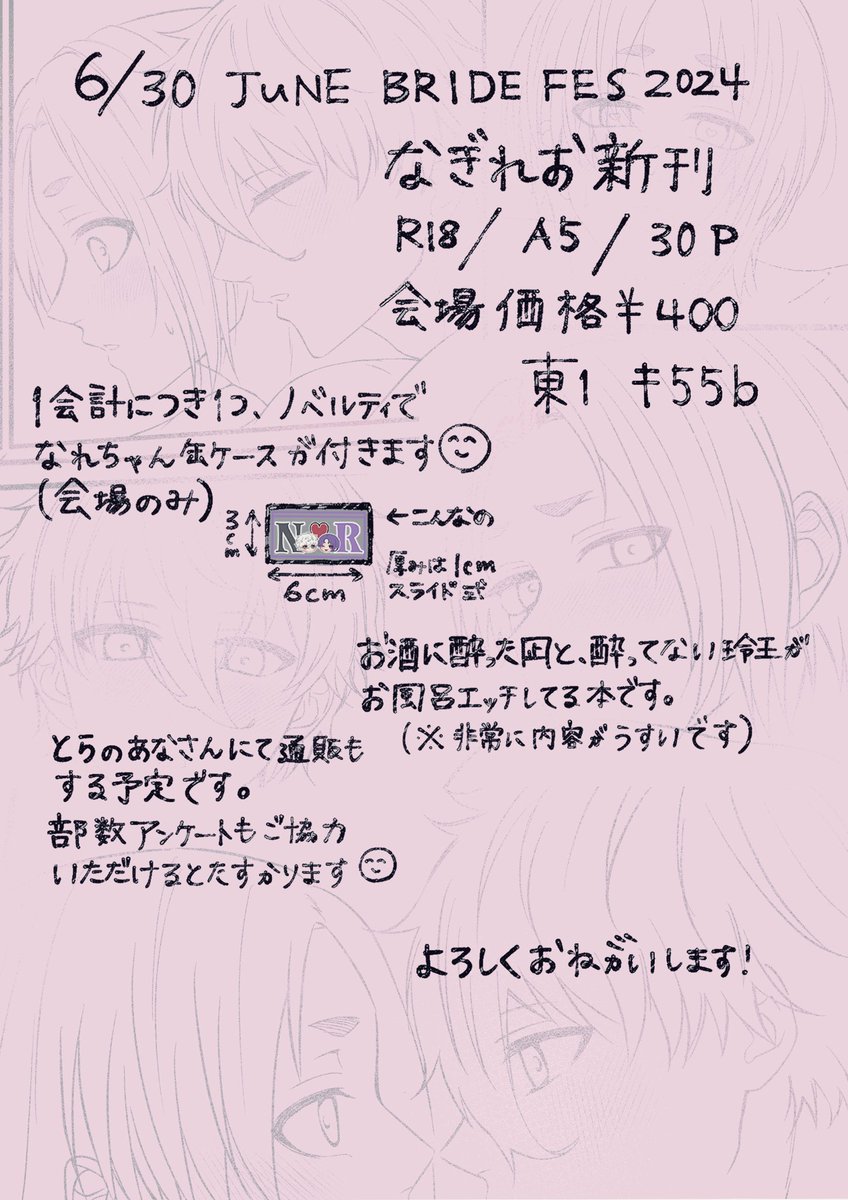 6/30 JUNE BRIDE FES 2024
なぎれお新刊
R18/ A5/30P
会場価格¥400
東1 キ55b
1会計につき1つ、ノベルティで
なれちゃん缶ケースが付きます
(会場のみ)
3cm
N R
←こんなの
6cm
厚みは1cm
スライド式
お酒に酔った凪と、酔ってない玲王が
お風呂エッチしてる本です。
(※非常に内容がうすいです)
とらのあなさんにて通販も
する予定です。
部数アンケートもご協力
いただけるとたすかります
よろしくおねがいします!